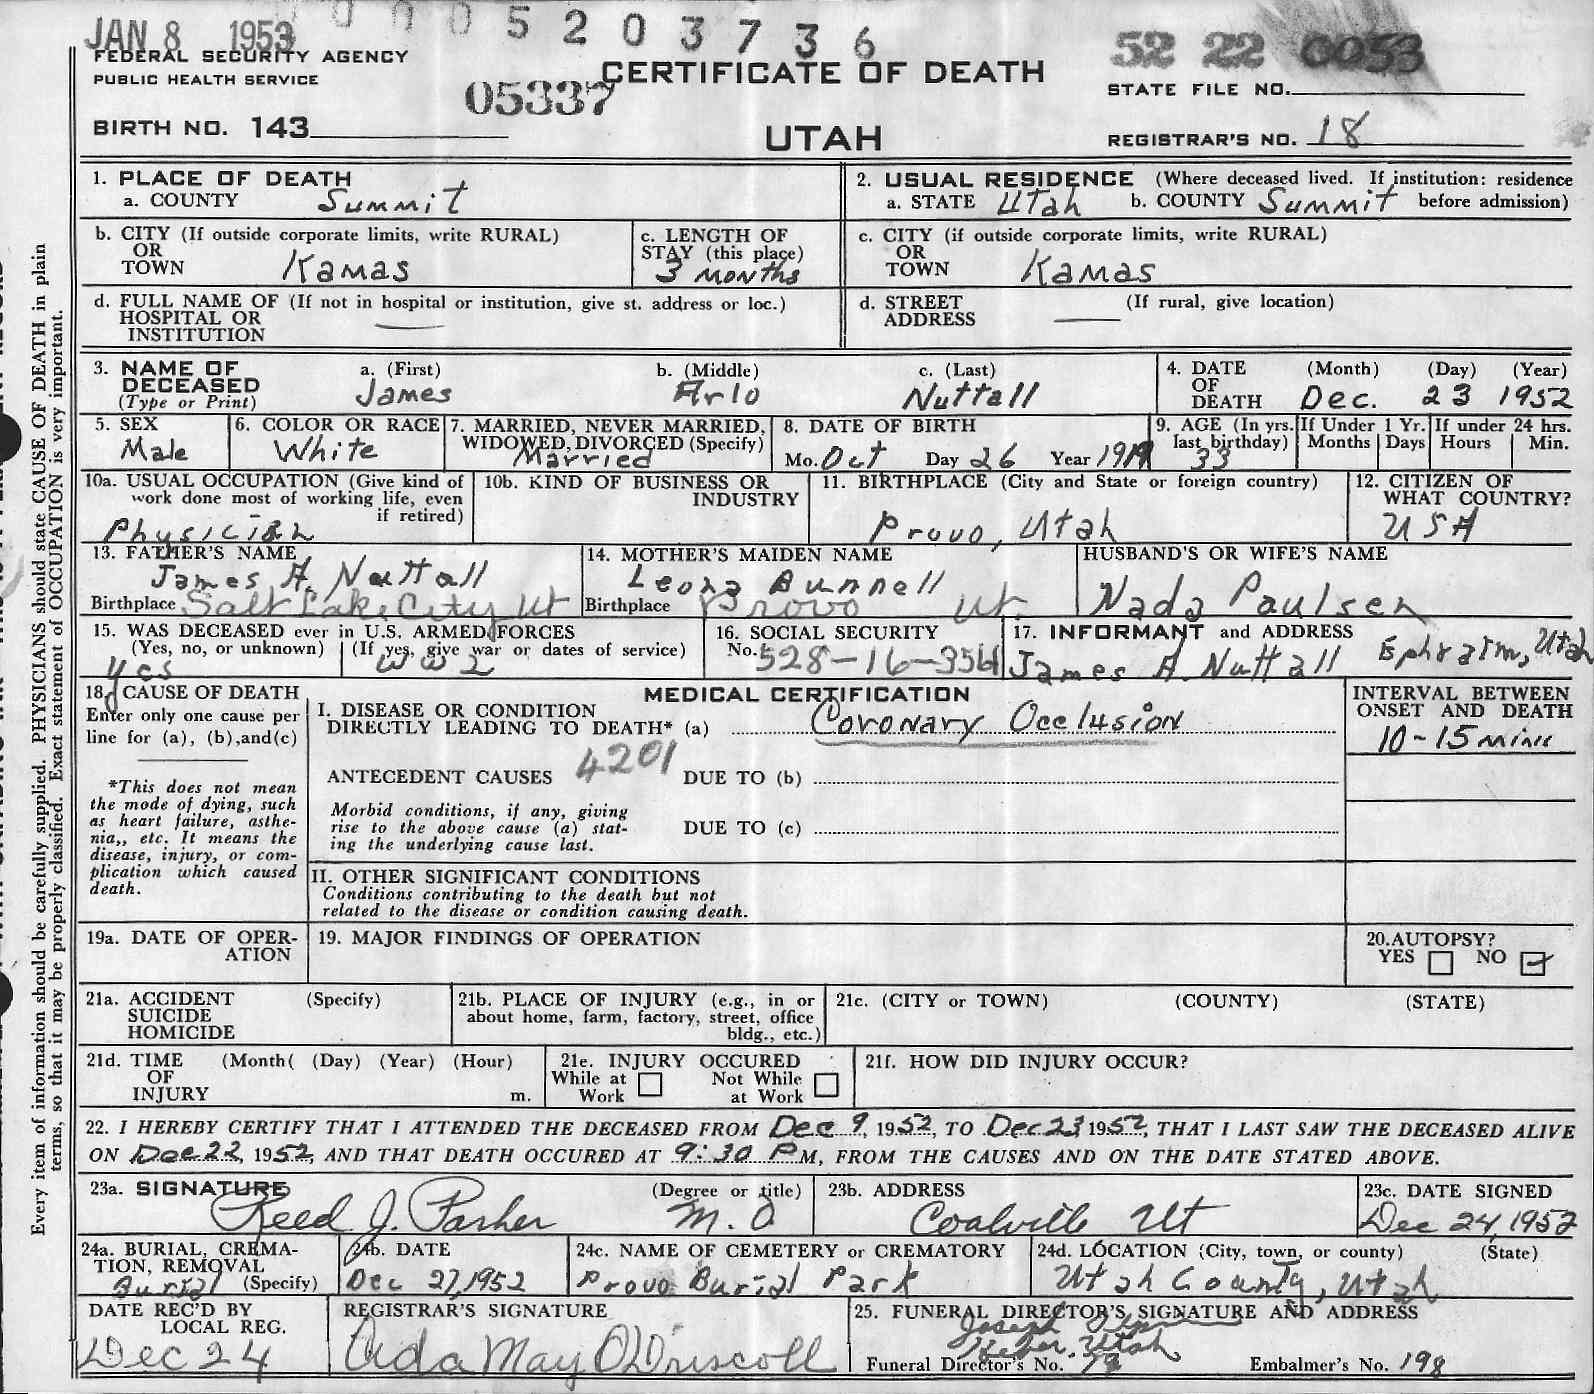 JAN 8 1953
0 0 0 5 2 0 3 7 3 6
52 22 0053
FEDERAL SECURITY AGENCY
PUBLIC HEALTH SERVICE
CERTIFICATE OF DEATH
STATE FILE NO.
05337
BIRTH NO. 143
UTAH
REGISTRAR'S NO. 18
Every item of information should be carefully supplied. PHYSICIANS should state CAUSE OF DEATH in plain
terms, so that it may be properly classified. Exact statement of OCCUPATION is very important.
1. PLACE OF DEATH
a. COUNTY Summit
2. USUAL RESIDENCE (Where deceased lived. If institution: residence
a. STATE Utah b. COUNTY Summit before admission)
b. CITY (If outside corporate limits, write RURAL)
OR
TOWN Kamas
c. LENGTH OF
STAY (this place)
3 Months
c. CITY (if outside corporate limits, write RURAL)
OR
TOWN Kamas
d. FULL NAME OF (If not in hospital or institution, give st. address or loc.)
HOSPITAL OR
INSTITUTION
d. STREET (If rural, give location)
ADDRESS
3. NAME OF
DECEASED
(Type or Print)
a. (First)
James
b. (Middle)
Arlo
c. (Last)
Nuttall
4. DATE (Month) (Day) (Year)
OF
DEATH Dec. 23 1952
5. SEX
Male
6. COLOR OR RACE
White
7. MARRIED, NEVER MARRIED,
WIDOWED, DIVORCED (Specify)
Married
8. DATE OF BIRTH
Mo. Oct Day 26 Year 1919
9. AGE (In yrs.
last birthday)
33
If Under 1 Yr.
Months Days
If under 24 hrs.
Hours Min.
10a. USUAL OCCUPATION (Give kind of
work done most of working life, even
if retired)
Physician
10b. KIND OF BUSINESS OR
INDUSTRY
11. BIRTHPLACE (City and State or foreign country)
Provo, Utah
12. CITIZEN OF
WHAT COUNTRY?
USA
13. FATHER'S NAME
James A. Nuttall
Birthplace Salt Lake City, Ut
14. MOTHER'S MAIDEN NAME
Leona Bunnell
Birthplace Provo Ut.
HUSBAND'S OR WIFE'S NAME
Nada Paulsen
15. WAS DECEASED ever in U.S. ARMED FORCES
(Yes, no, or unknown) (If yes, give war or dates of service)
yes W W 2
16. SOCIAL SECURITY
No. 528-16-
17. INFORMANT and ADDRESS
James A. Nuttall Ephraim, Utah
18. CAUSE OF DEATH
Enter only one cause per
line for (a), (b), and (c)
*This does not mean
the mode of dying, such
as heart failure, asthe-
nia,, etc. It means the
disease, injury, or com-
plication which caused
death.
MEDICAL CERTIFICATION
I. DISEASE OR CONDITION
DIRECTLY LEADING TO DEATH* (a) Coronary Occlusion
4201
ANTECEDENT CAUSES DUE TO (b)
Morbid conditions, if any, giving
rise to the above cause (a) stat-
ing the underlying cause last.
DUE TO (c)
II. OTHER SIGNIFICANT CONDITIONS
Conditions contributing to the death but not
related to the disease or condition causing death.
INTERVAL BETWEEN
ONSET AND DEATH
10-15
19a. DATE OF OPER-
ATION
19. MAJOR FINDINGS OF OPERATION
20. AUTOPSY?
YES NO
21a. ACCIDENT (Specify)
SUICIDE
HOMICIDE
21b. PLACE OF INJURY (e.g., in or
about home, farm, factory, street, office
bldg., etc.)
21c. (CITY or TOWN) (COUNTY) (STATE)
21d. TIME (Month( (Day) (Year) (Hour)
OF
INJURY m.
21e. INJURY OCCURED
While at Work Not While at Work
21f. HOW DID INJURY OCCUR?
22. I HEREBY CERTIFY THAT I ATTENDED THE DECEASED FROM Dec 9, 1952, TO Dec 23 1952, THAT I LAST SAW THE DECEASED ALIVE
ON Dec 22, 1952, AND THAT DEATH OCCURED AT 9:30 PM, FROM THE CAUSES AND ON THE DATE STATED ABOVE.
23a. SIGNATURE (Degree or title)
Reed J. Parker M.D
23b. ADDRESS
Coalville Ut
23c. DATE SIGNED
Dec 24, 1952
24a. BURIAL, CREMA-
TION, REMOVAL
Burial (Specify)
24b. DATE
Dec 27, 1952
24c. NAME OF CEMETERY or CREMATORY
Provo Burial Park
24d. LOCATION (City, town, or county) (State)
Utah County, Utah
DATE REC'D BY
LOCAL REG.
Dec 24
REGISTRAR'S SIGNATURE
Ada May O'Driscoll
25. FUNERAL DIRECTOR'S SIGNATURE AND ADDRESS
Joseph
Heber, Utah
Funeral Director's No. Embalmer's No. 198